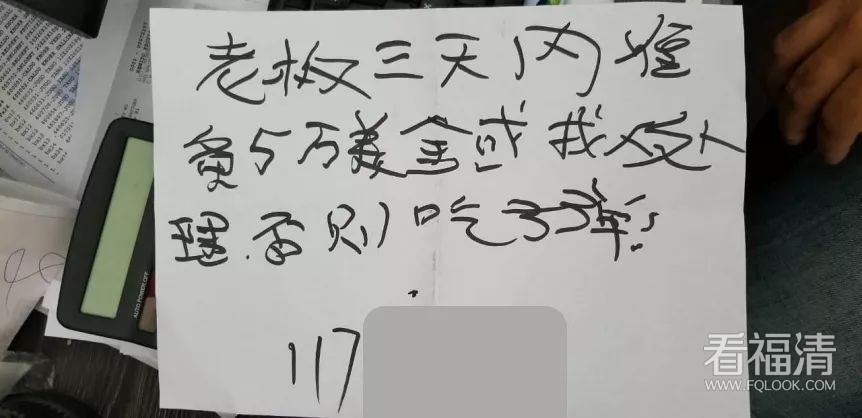 老板三天内准
备5万美金或找人处
理.否则吃子弹!
117
看福清
WWW.FQLOOK.COM
AUTO POWER OFF